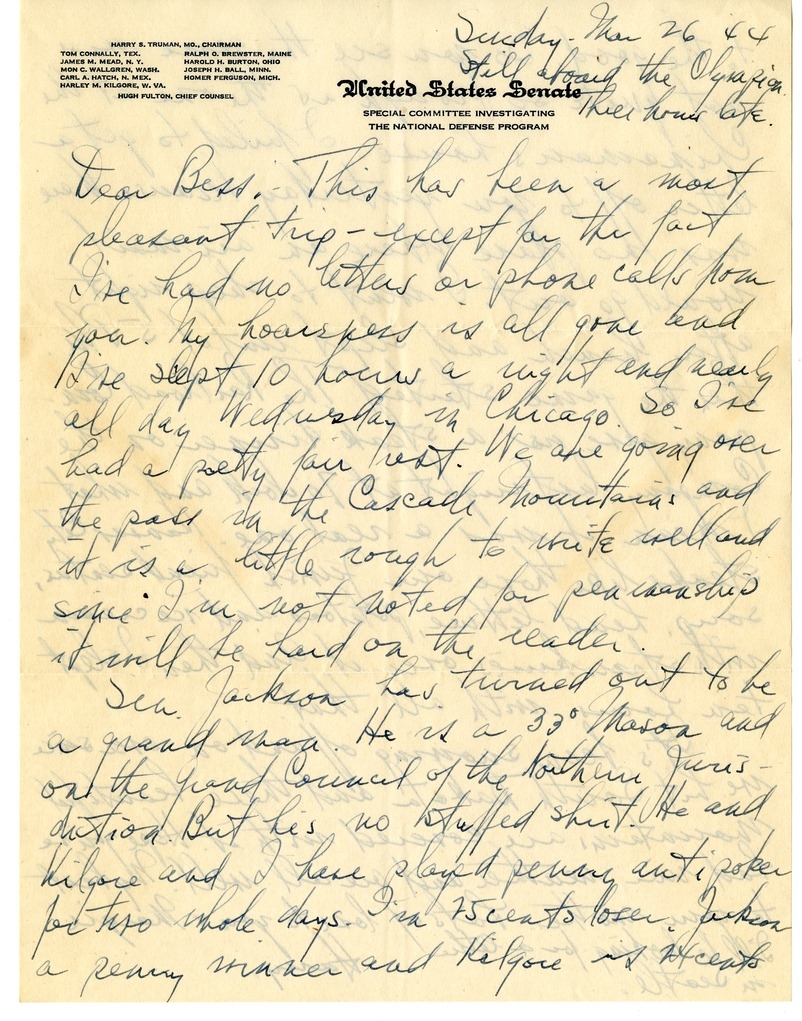 HARRY S. TRUMAN, MO., CHAIRMAN
TOM CONNALLY, TEX. RALPH O. BREWSTER, MAINE
JAMES M. MEAD, N. Y. HAROLD H. BURTON, OHIO
MON C. WALLGREN, WASH. JOSEPH H. BALL, MINN.
CARL A. HATCH, N. MEX. HOMER FERGUSON, MICH.
HARLEY M. KILGORE, W. VA.
HUGH FULTON, CHIEF COUNSEL
United States Senate
SPECIAL COMMITTEE INVESTIGATING
THE NATIONAL DEFENSE PROGRAM
Sunday - Mar 26 44
Still aboard the Olympian.
Three hours late.
Dear Bess:- This has been a most
pleasant trip - except for the fact
I've had no letters or phone calls from
you. My hoarsness is all gone and
I've slept 10 hours a night and nearly
all day Wednesday in Chicago. So I've
had a pretty fair rest. We are going over
the pass in the Cascade Mountains and
it is a little rough to write well and
since I'm not noted for penmanship
it will be hard on the reader.
Sen. Jackson has turned out to be
a grand man. He is a 33° Mason and
on the grand Council of the Northern Juris-
diction. But he's no stuffed shirt. He and
Kilgore and I have played penny anti poker
for two whole days. I'm 25 cents loser, Jackson
a penny winner and Kilgore is 24 cents